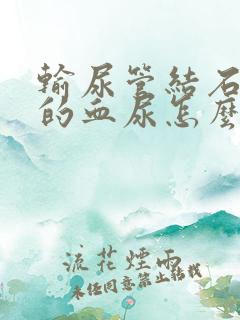 輸尿管結石
的血尿怎麼
流花煙雨
未經同意禁止轉載